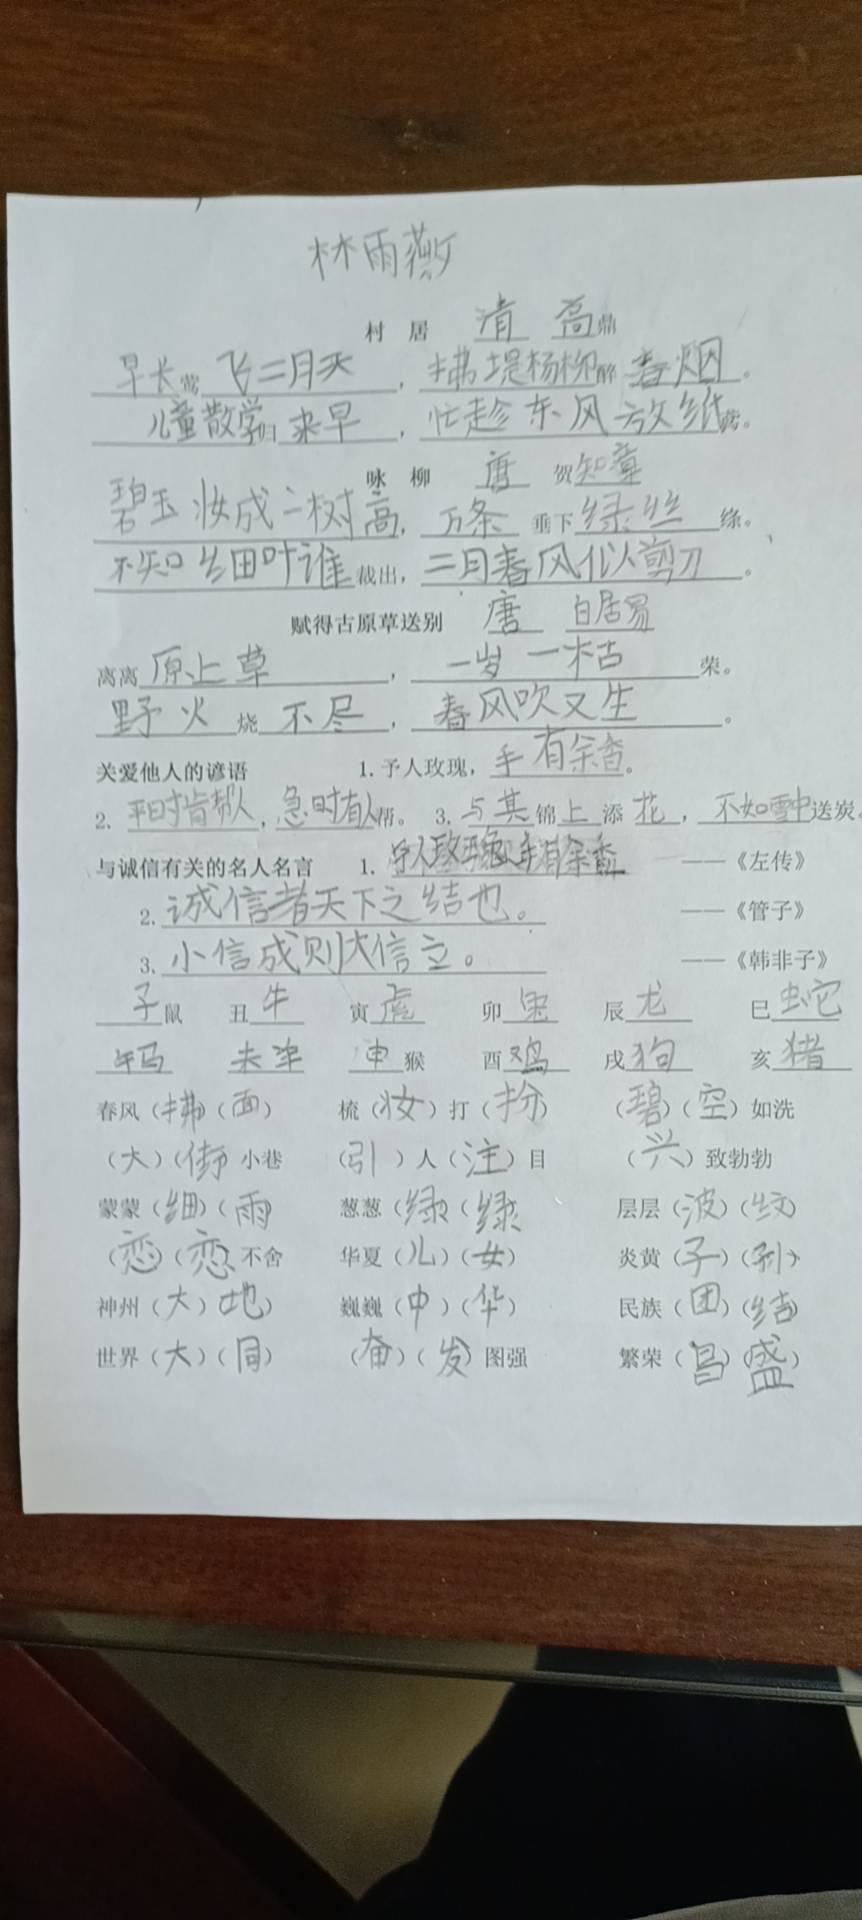 林雨燕
村 居 清 高鼎
早长莺飞二月天，拂堤杨柳醉春烟。
儿童散学归来早，忙趁东风放纸鸢。
咏 柳 唐 贺知章
碧玉妆成一树高，万条垂下绿丝绦。
不知细叶谁裁出，二月春风似剪刀。
赋得古原草送别 唐 白居易
离离原上草，一岁一枯荣。
野火烧不尽，春风吹又生。
关爱他人的谚语 1.予人玫瑰，手有余香。
2.平时肯帮人，急时有人帮。 3.与其锦上添花，不如雪中送炭。
与诚信有关的名人名言 1.予人玫瑰手有余香 ——《左传》
2.诚信者天下之结也。 ——《管子》
3.小信成则大信立。 ——《韩非子》
子鼠 丑牛 寅虎 卯兔 辰龙 巳蛇
午马 未羊 申猴 酉鸡 戌狗 亥猪
春风（拂）（面） 梳（妆）打（扮） （碧）（空）如洗
（大）（街）小巷 （引）人（注）目 （兴）致勃勃
蒙蒙（细）（雨） 葱葱（绿）（绿） 层层（波）（纹）
（恋）（恋）不舍 华夏（儿）（女） 炎黄（子）（孙）
神州（大）（地） 巍巍（中）（华） 民族（团）（结）
世界（大）（同） （奋）（发）图强 繁荣（昌）（盛）